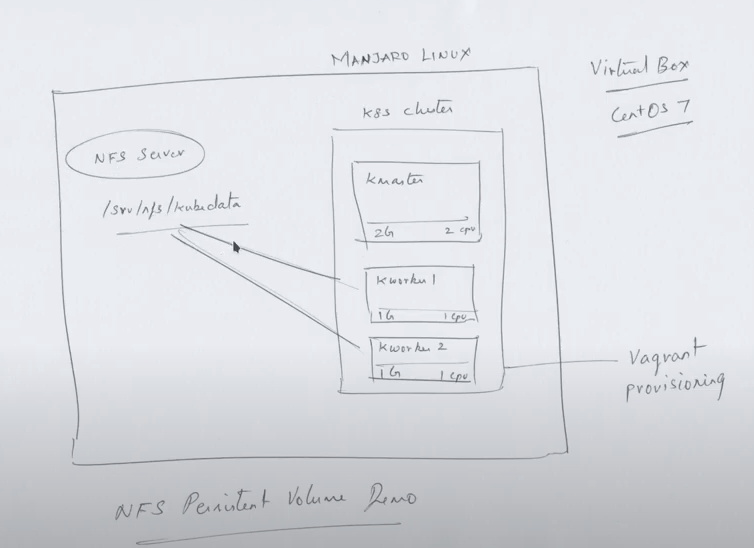 MANJARO LINUX
Virtual Box
CentOS 7
K8s cluster
NFS Server
/srv/nfs/kubedata
kmaster
2G 2 cpu
kworker 1
1G 1 cpu
kworker 2
1G 1 cpu
Vagrant
provisioning
NFS Persistent Volume Demo